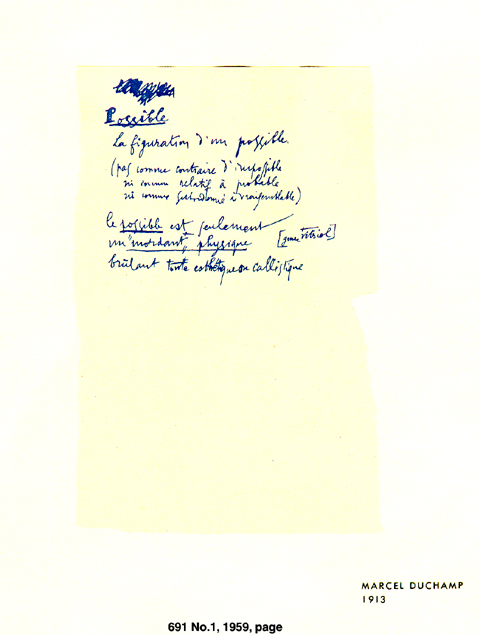 Possible
La figuration d'un possible.
(pas comme contraire d'impossible
ni comme relatif à probable
ni comme subordonné à vraisemblable)
le possible est seulement
un "mordant" physique [genre vitriol]
brûlant toute esthétique ou callistique
MARCEL DUCHAMP
1913
691 No.1, 1959, page